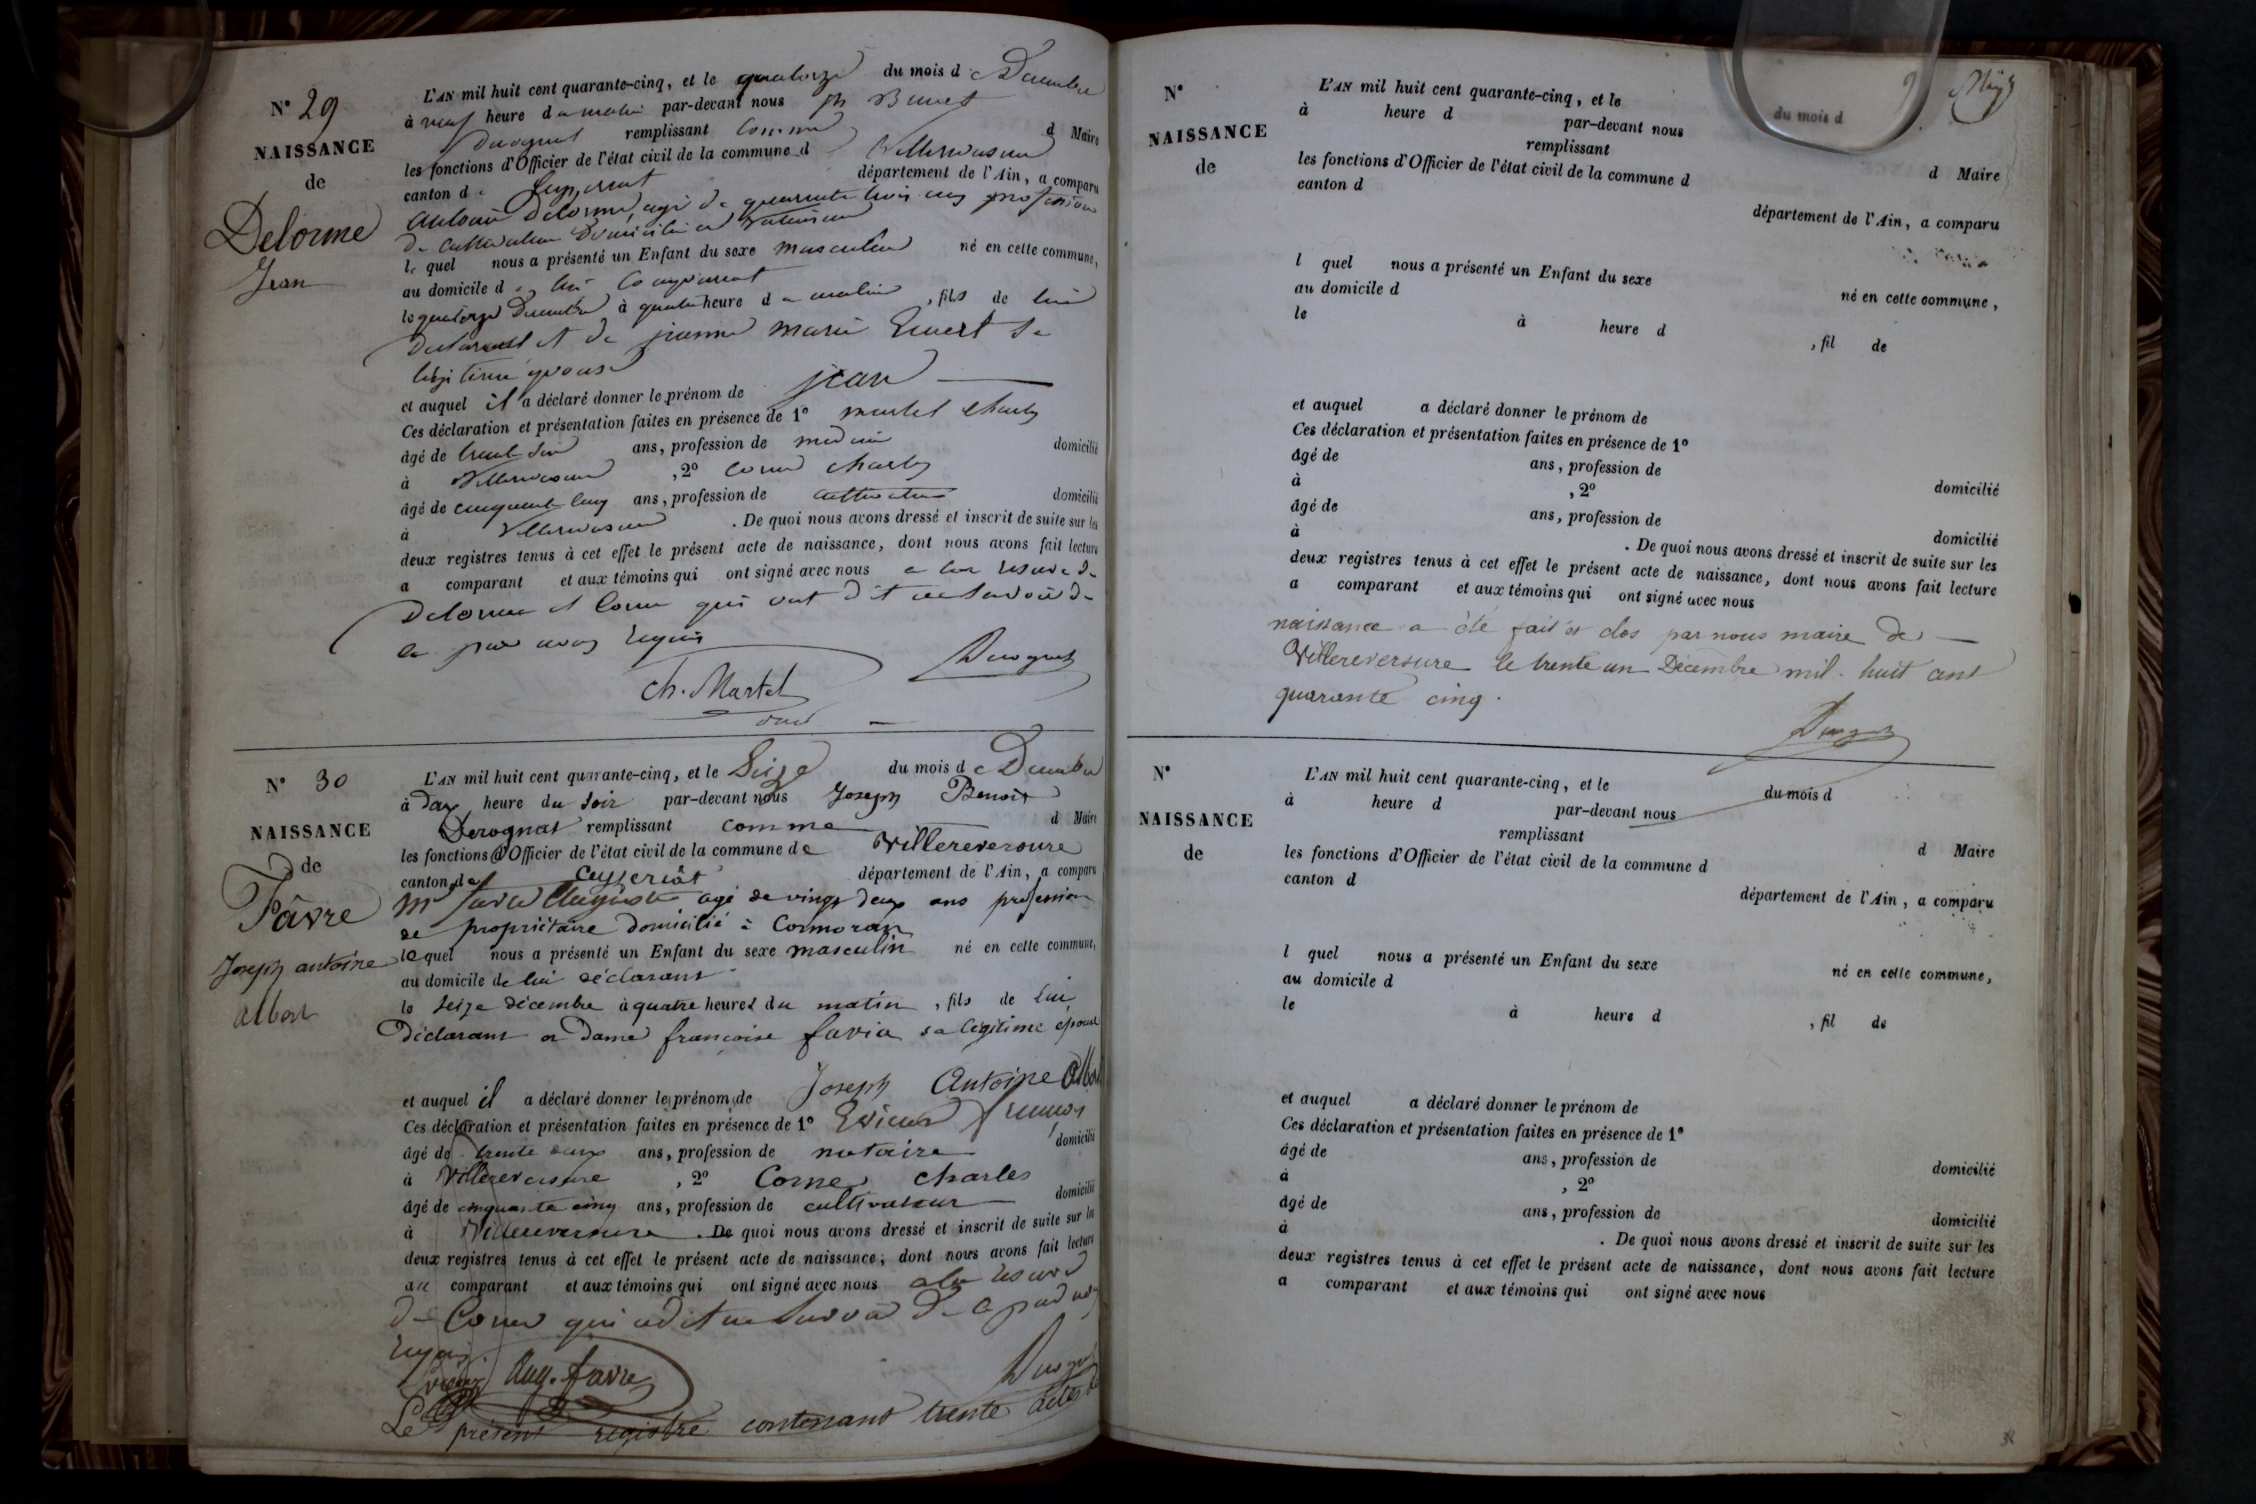 N° 29
NAISSANCE
de
Delorme
Jean
L'AN mil huit cent quarante-cinq, et le quatorze du mois de Décembre
à neuf heure du matin par-devant nous
remplissant comme d Maire
les fonctions d'Officier de l'état civil de la commune d Villereversure
canton de Ceyzeriat département de l'Ain, a comparu
antoine Delorme, agé de quarante trois ans profession
de cultivateur Domicilié a
le quel nous a présenté un Enfant du sexe masculin né en cette commune,
au domicile de lui Comparant
le quatorze Décembre à quatre heure du matin, fils de lui
Déclarant et de jeanne marie sa
légitime épouse
et auquel il a déclaré donner le prénom de jean
Ces déclaration et présentation faites en présence de 1° martel Charles
âgé de ans, profession de médecin domicilié
à Villereversure, 2° Corne charles
âgé de cinquante cinq ans, profession de cultivateur domicilié
à Villereversure. De quoi nous avons dressé et inscrit de suite sur les
deux registres tenus à cet effet le présent acte de naissance, dont nous avons fait lecture
a comparant et aux témoins qui ont signé avec nous a la réserve de
Delorme et Corne qui ont dit ne savoir de
ce par nous requis
Derognat
Ch. Martel
N° 30
NAISSANCE
de
Fâvre
Joseph antoine
albert
L'AN mil huit cent quarante-cinq, et le Seize du mois de Décembre
à deux heure du soir par-devant nous Joseph Benoit
Derognat remplissant comme d Maire
les fonctions d'Officier de l'état civil de la commune de Villereversure
canton de Ceyzeriat département de l'Ain, a comparu
Mr favre Auguste agé de vingt deux ans profession
de propriétaire domicilié à Cormoran
lequel nous a présenté un Enfant du sexe masculin né en cette commune,
au domicile de lui déclarant
le seize décembre à quatre heures du matin, fils de lui
Déclarant et Dame françoise favia sa légitime épouse
et auquel il a déclaré donner le prénom de Joseph Antoine Albert
Ces déclaration et présentation faites en présence de 1°
âgé de trente deux ans, profession de notaire domicilié
à Villereversure, 2° Corne charles
âgé de cinquante cinq ans, profession de cultivateur domicilié
à Villereversure. De quoi nous avons dressé et inscrit de suite sur les
deux registres tenus à cet effet le présent acte de naissance, dont nous avons fait lecture
au comparant et aux témoins qui ont signé avec nous a la réserve
de Corne qui a dit ne savoir de ce par nous
requis.
Aug. favre
Derognat
Le présent registre contenant trente actes de
N°
NAISSANCE
de
L'AN mil huit cent quarante-cinq, et le du mois d
à heure d par-devant nous
remplissant d Maire
les fonctions d'Officier de l'état civil de la commune d
canton d département de l'Ain, a comparu
l quel nous a présenté un Enfant du sexe né en cette commune,
au domicile d
le à heure d , fil de
et auquel a déclaré donner le prénom de
Ces déclaration et présentation faites en présence de 1°
âgé de ans, profession de domicilié
à , 2°
âgé de ans, profession de domicilié
à . De quoi nous avons dressé et inscrit de suite sur les
deux registres tenus à cet effet le présent acte de naissance, dont nous avons fait lecture
a comparant et aux témoins qui ont signé avec nous
naissance a été fait et clos par nous maire de
Villereversure le trente un Décembre mil huit cent
quarante cinq.
Derognat
N°
NAISSANCE
de
L'AN mil huit cent quarante-cinq, et le du mois d
à heure d par-devant nous
remplissant d Maire
les fonctions d'Officier de l'état civil de la commune d
canton d département de l'Ain, a comparu
l quel nous a présenté un Enfant du sexe né en cette commune,
au domicile d
le à heure d , fil de
et auquel a déclaré donner le prénom de
Ces déclaration et présentation faites en présence de 1°
âgé de ans, profession de domicilié
à , 2°
âgé de ans, profession de domicilié
à . De quoi nous avons dressé et inscrit de suite sur les
deux registres tenus à cet effet le présent acte de naissance, dont nous avons fait lecture
a comparant et aux témoins qui ont signé avec nous